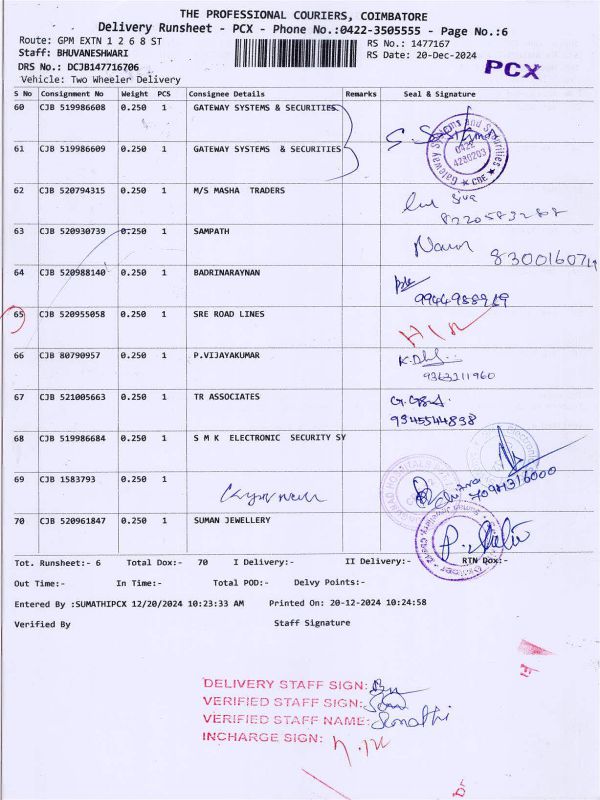 THE PROFESSIONAL COURIERS, COIMBATORE
Delivery Runsheet - PCX - Phone No.:0422-3505555 - Page No.:6
Route: GPM EXTN 1 2 6 8 ST
RS No.: 1477167
Staff: BHUVANESHWARI
RS Date: 20-Dec-2024
DRS No.: DCJB147716706
PCX
Vehicle: Two Wheeler Delivery
S No Consignment No Weight PCS Consignee Details Remarks Seal & Signature
60 CJB 519986608 0.250 1 GATEWAY SYSTEMS & SECURITIES
Gateway Systems and Securities
0422
4280203
CBE
61 CJB 519986609 0.250 1 GATEWAY SYSTEMS & SECURITIES
62 CJB 520794315 0.250 1 M/S MASHA TRADERS
Siva
8220583288
63 CJB 520930739 0.250 1 SAMPATH
8300160719
64 CJB 520988140 0.250 1 BADRINARAYNAN
65 CJB 520955058 0.250 1 SRE ROAD LINES
66 CJB 80790957 0.250 1 P.VIJAYKUMAR
9363211960
67 CJB 521005663 0.250 1 TR ASSOCIATES
9345544838
68 CJB 519986684 0.250 1 S M K ELECTRONIC SECURITY SY
69 CJB 1583793 0.250 1
70 CJB 520961847 0.250 1 SUMAN JEWELLERY
Tot. Runsheet:- 6 Total Dox:- 70 I Delivery:- II Delivery:- RTN Dox:-
Out Time:- In Time:- Total POD:- Delvy Points:-
Entered By :SUMATHIPCX 12/20/2024 10:23:33 AM Printed On: 20-12-2024 10:24:58
Verified By Staff Signature
DELIVERY STAFF SIGN:
VERIFIED STAFF SIGN:
VERIFIED STAFF NAME: Sumathi
INCHARGE SIGN: